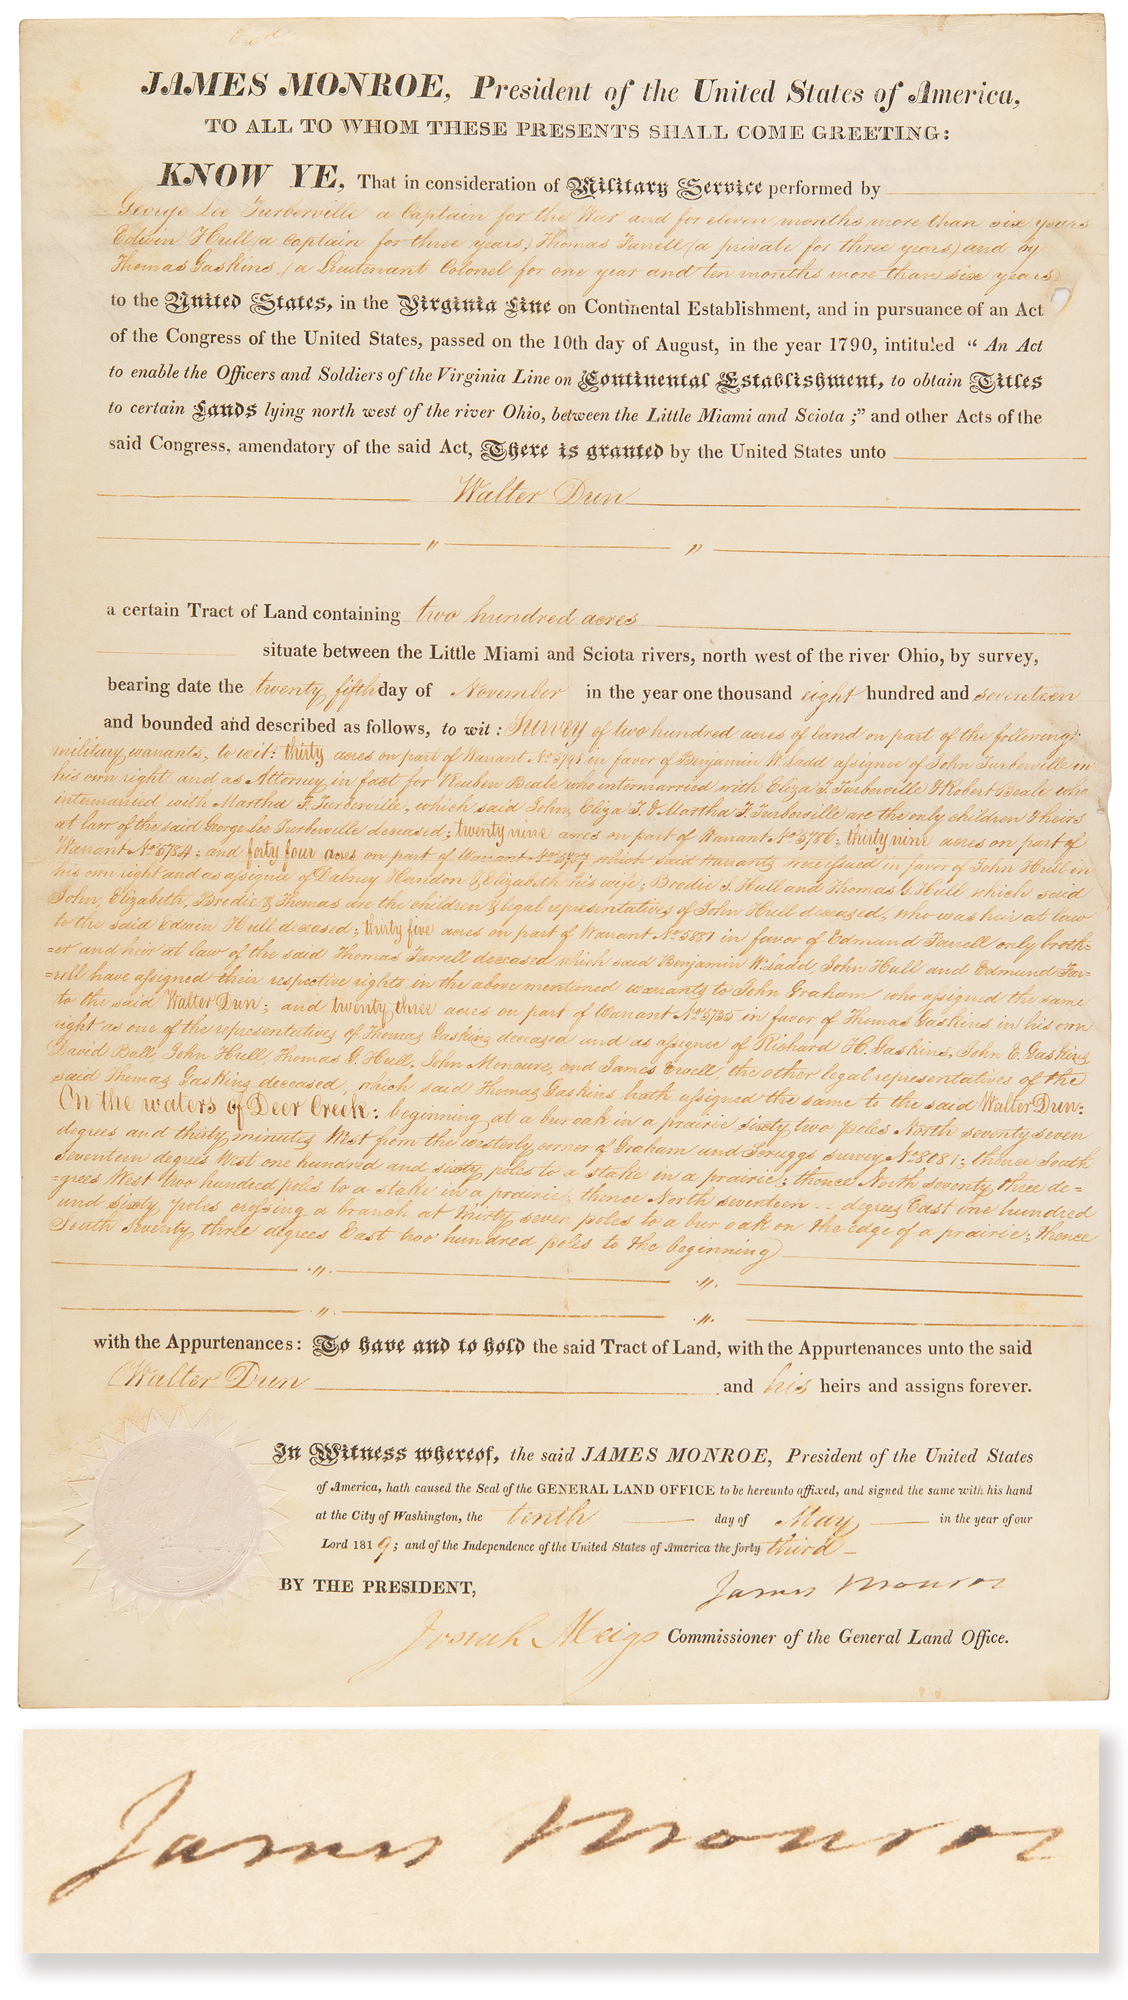 JAMES MONROE, President of the United States of America,
TO ALL TO WHOM THESE PRESENTS SHALL COME GREETING:
KNOW YE, That in consideration of Military Service performed by
George Lee Turberville a Captain for the War and for eleven months more than six years
Edwin Hull (a Captain for three years,) Thomas Farrell (a private for three years) and by
Thomas Gaskins, (a Lieutenant Colonel for one year and ten months more than six years)
to the United States, in the Virginia Line on Continental Establishment, and in pursuance of an Act
of the Congress of the United States, passed on the 10th day of August, in the year 1790, intituled “ An Act
to enable the Officers and Soldiers of the Virginia Line on Continental Establishment, to obtain Titles
to certain Lands lying north west of the river Ohio, between the Little Miami and Sciota ;” and other Acts of the
said Congress, amendatory of the said Act, There is granted by the United States unto
Walter Dun
" "
a certain Tract of Land containing two hundred acres
situate between the Little Miami and Sciota rivers, north west of the river Ohio, by survey,
bearing date the twenty fifth day of November in the year one thousand eight hundred and seventeen
and bounded and described as follows, to wit: Survey of two hundred acres of land on part of the following
military warrants, to wit: thirty acres on part of Warrant No in favor of Benjamin W. Ladd assignee of John Turberville in
his own right and as Attorney in fact for Reuben Beale who intermarried with Eliza T. Turberville & Robert Beale who
intermarried with Martha F. Turberville, which said John, Eliza T. & Martha F. Turberville are the only children & heirs
at law of the said George Lee Turberville deceased; twenty nine acres on part of Warrant No 5786; thirty nine acres on part of
Warrant No 5784; and forty four acres on part of Warrant No which said Warrants were issued in favor of John Hull in
his own right and as assignee of Dabney Handon & Elizabeth his wife; Brodie S. Hull and Thomas G. Hull which said
John, Elizabeth, Brodie & Thomas are the children & legal representatives of John Hull deceased, who was heir at law
to the said Edwin Hull deceased; thirty five acres on part of Warrant No 5881 in favor of Edmund Farrell only broth=
=er and heir at law of the said Thomas Farrell deceased which said Benjamin W. Ladd, John Hull and Edmund Far=
=rell have assigned their respective rights in the above mentioned warrants to John Graham who assigned the same
to the said Walter Dun; and twenty three acres on part of Warrant No 5735 in favor of Thomas Gaskins in his own
right as one of the representatives of Thomas Gaskins deceased and as assignee of Richard H. Gaskins, John E. Gaskins
David Ball, John Hull, Thomas G. Hull, John Moncure, and James Ewell, the other legal representatives of the
said Thomas Gaskins deceased, which said Thomas Gaskins hath assigned the same to the said Walter Dun:
On the waters of Deer Creek: beginning at a bur oak in a prairie sixty two poles North seventy seven
degrees and thirty minutes West from the westerly corner of Graham and Scruggs survey No 8081; thence South
Seventeen degrees West one hundred and sixty poles to a stake in a prairie; thence North seventy three de=
=grees West two hundred poles to a stake in a prairie, thence North seventeen degrees East one hundred
and sixty poles crossing a branch at thirty seven poles to a bur oak on the edge of a prairie; thence
South Seventy three degrees East two hundred poles to the beginning
" "
" "
with the Appurtenances: To have and to hold the said Tract of Land, with the Appurtenances unto the said
Walter Dun and his heirs and assigns forever.
In Witness whereof, the said JAMES MONROE, President of the United States
of America, hath caused the Seal of the GENERAL LAND OFFICE to be hereunto affixed, and signed the same with his hand
at the City of Washington, the tenth day of May in the year of our
Lord 1819; and of the Independence of the United States of America the forty third
BY THE PRESIDENT, James Monroe
Josiah Meigs Commissioner of the General Land Office.
James Monroe